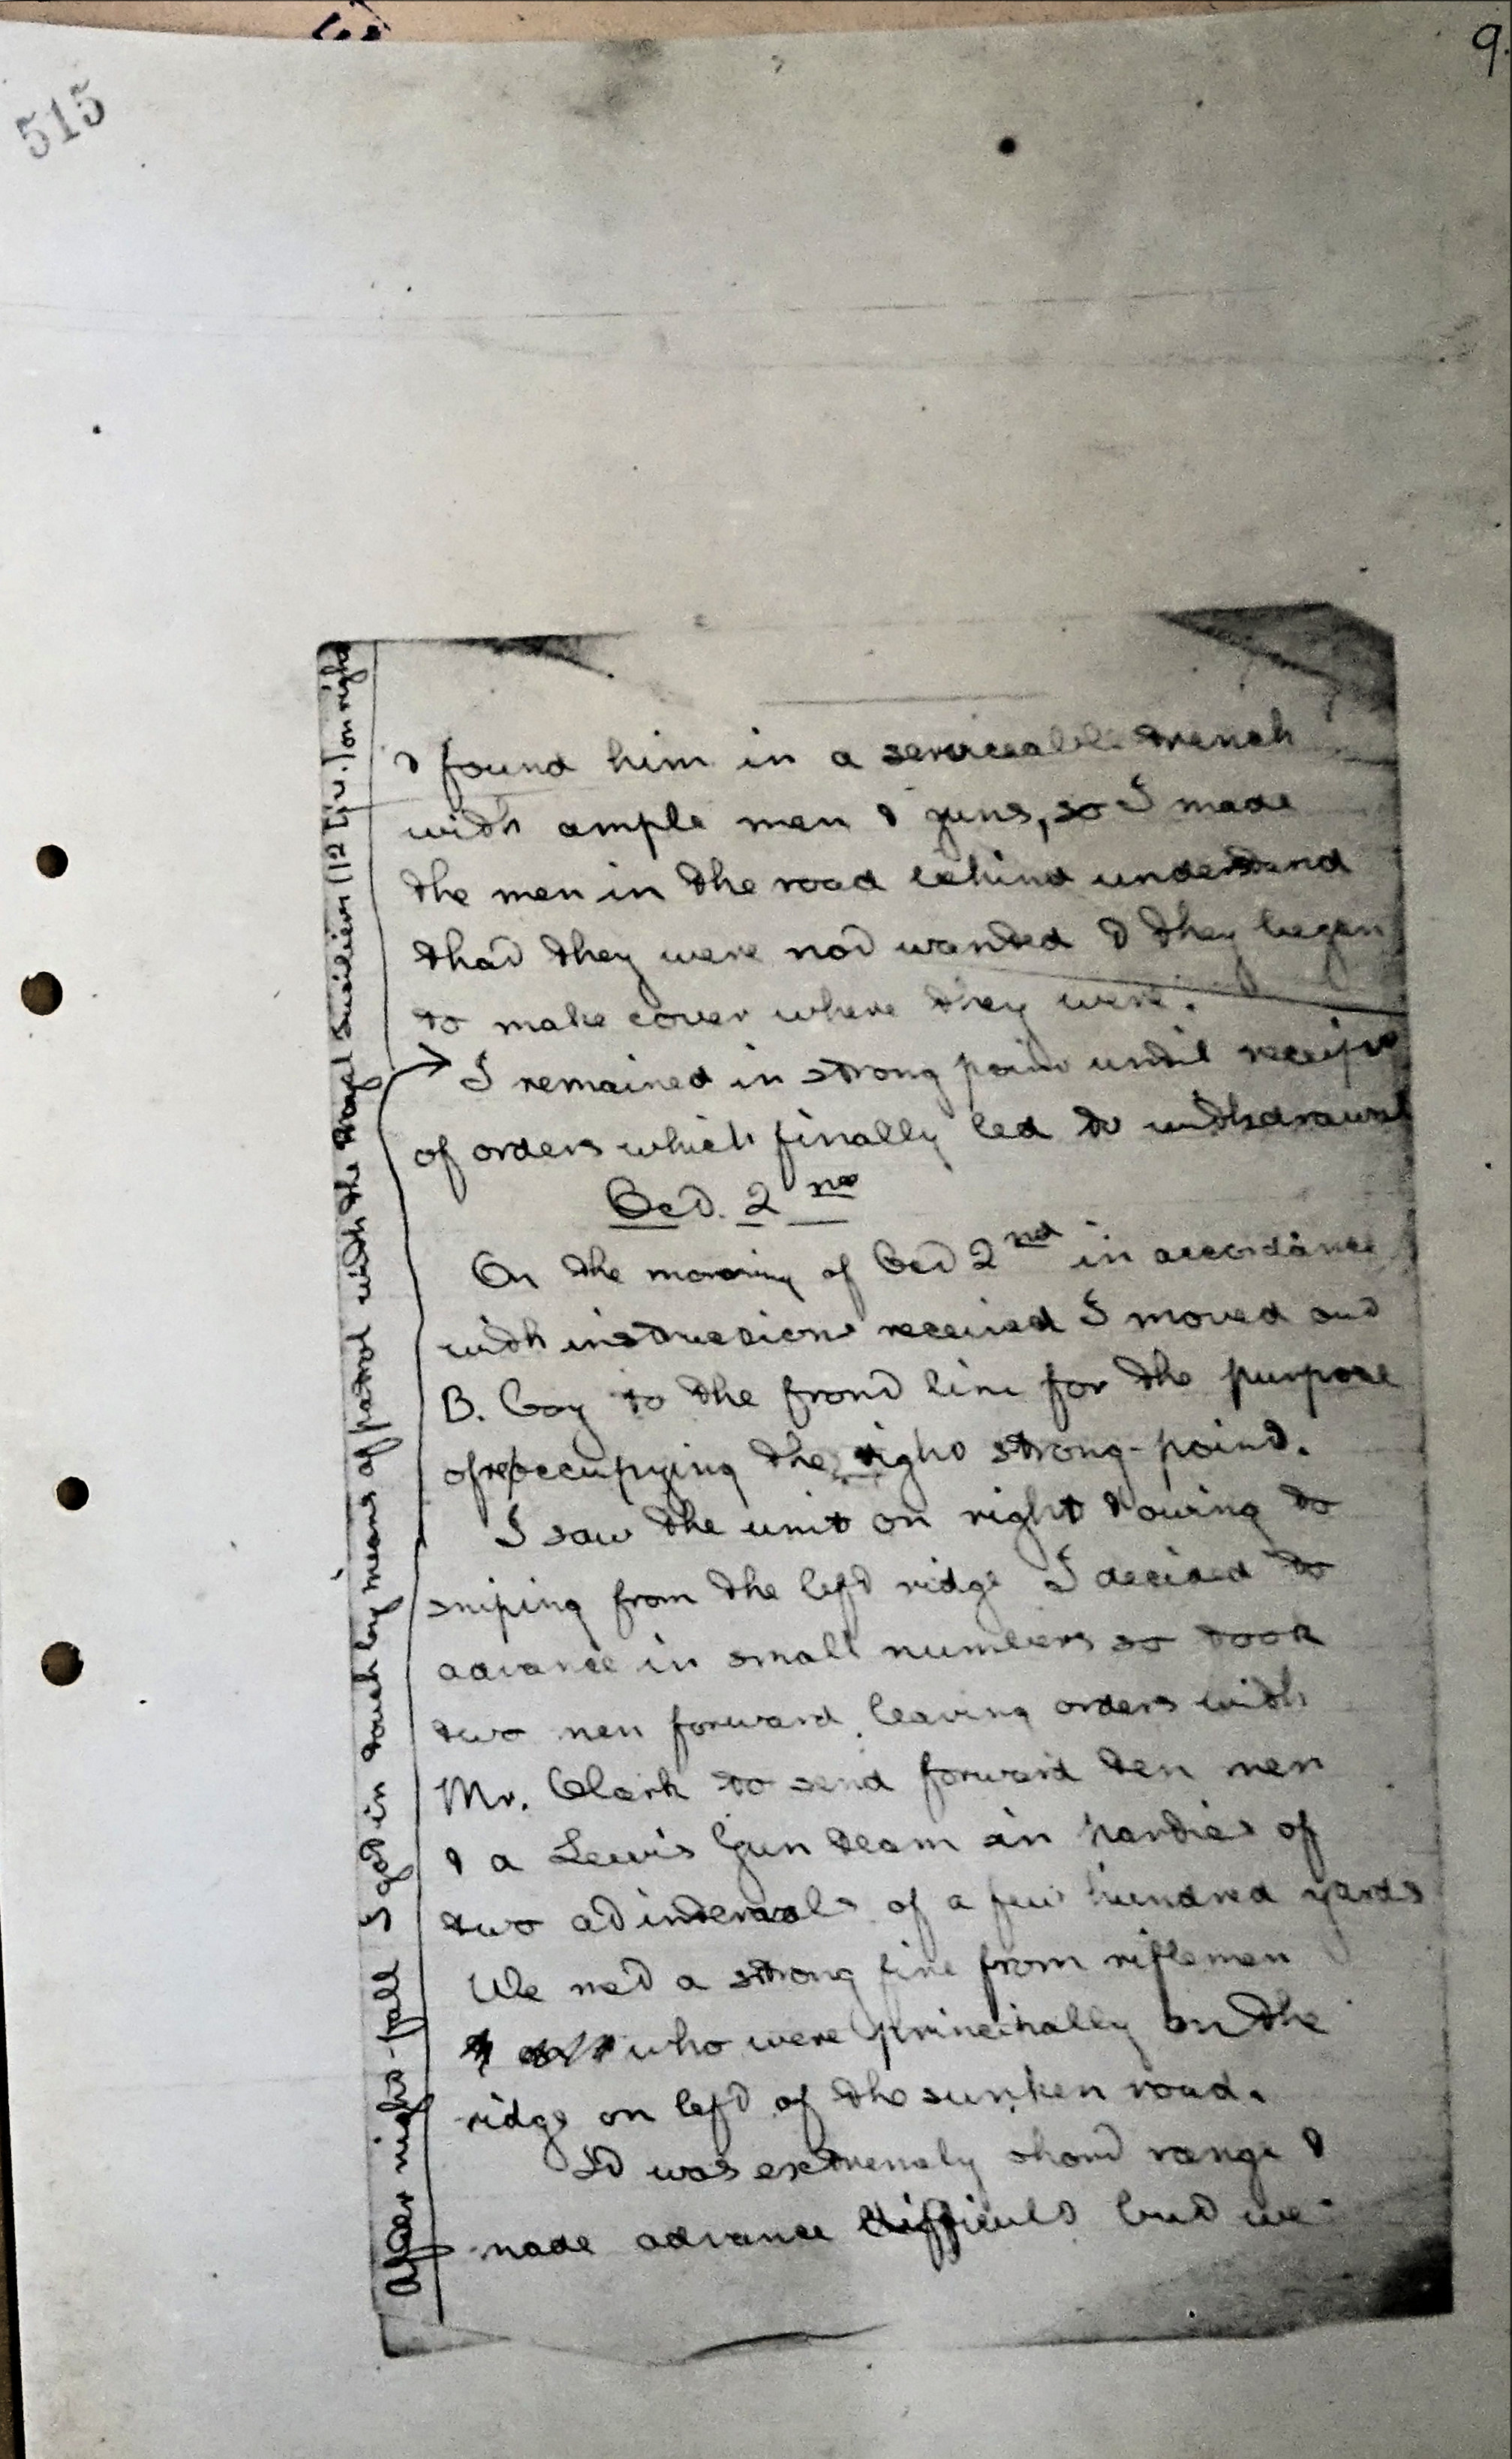 515
9.
& found him in a serviceable trench
with ample men & guns, so I made
the men in the road behind understand
that they were not wanted & they began
to make cover where they were.
I remained in strong point until receipt
of orders which finally led to withdrawal
Oct. 2nd
On the morning of Oct 2nd in accordance
with instructions received I moved out
B. Coy to the front line for the purpose
of reoccupying the right strong-point.
I saw the unit on right & owing to
sniping from the left ridge I decided to
advance in small numbers so took
two men forward leaving orders with
Mr. Clark to send forward ten men
& a Lewis Gun team in parties of
two at intervals of a few hundred yards
We met a strong fire from riflemen
who were principally on the
ridge on left of the sunken road.
It was extremely short range &
made advance difficult but we
After night-fall I got in touch by means of patrol with the Royal Fusiliers (12 Div.) on right